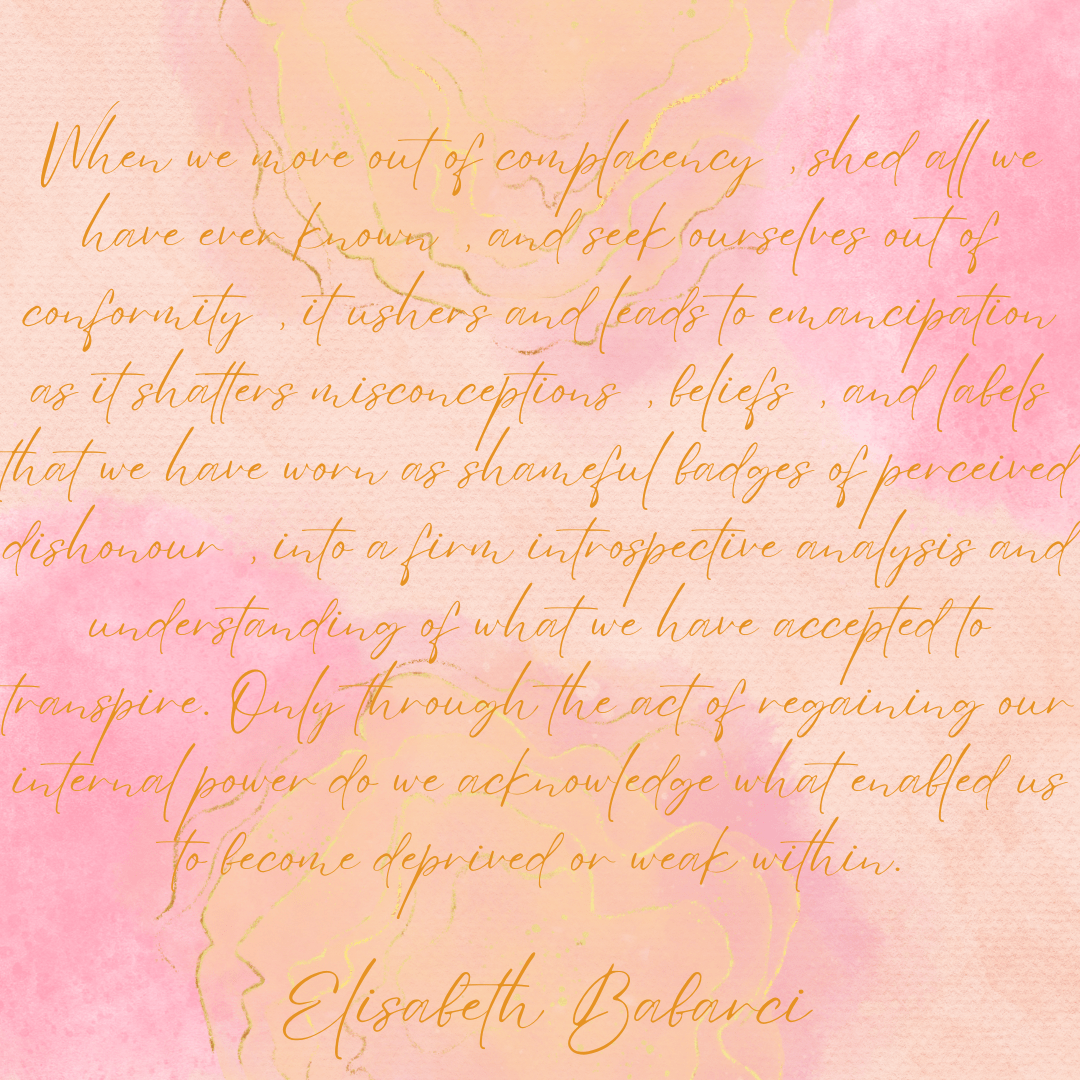 When we move out of complacency , shed all we
have ever known , and seek ourselves out of
conformity , it ushers and leads to emancipation
as it shatters misconceptions , beliefs , and labels
that we have worn as shameful badges of perceived
dishonour , into a firm introspective analysis and
understanding of what we have accepted to
transpire. Only through the act of regaining our
internal power do we acknowledge what enabled us
to become deprived or weak within.
Elisabeth Babarci